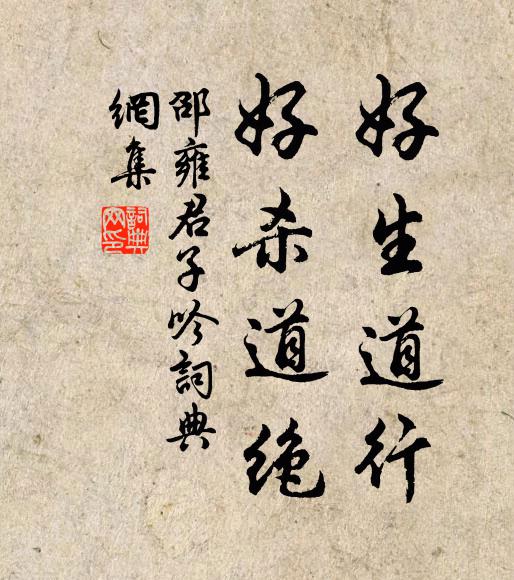 好生道行
好杀道绝
邵雍君子吟詞典
網集
詞典
网印